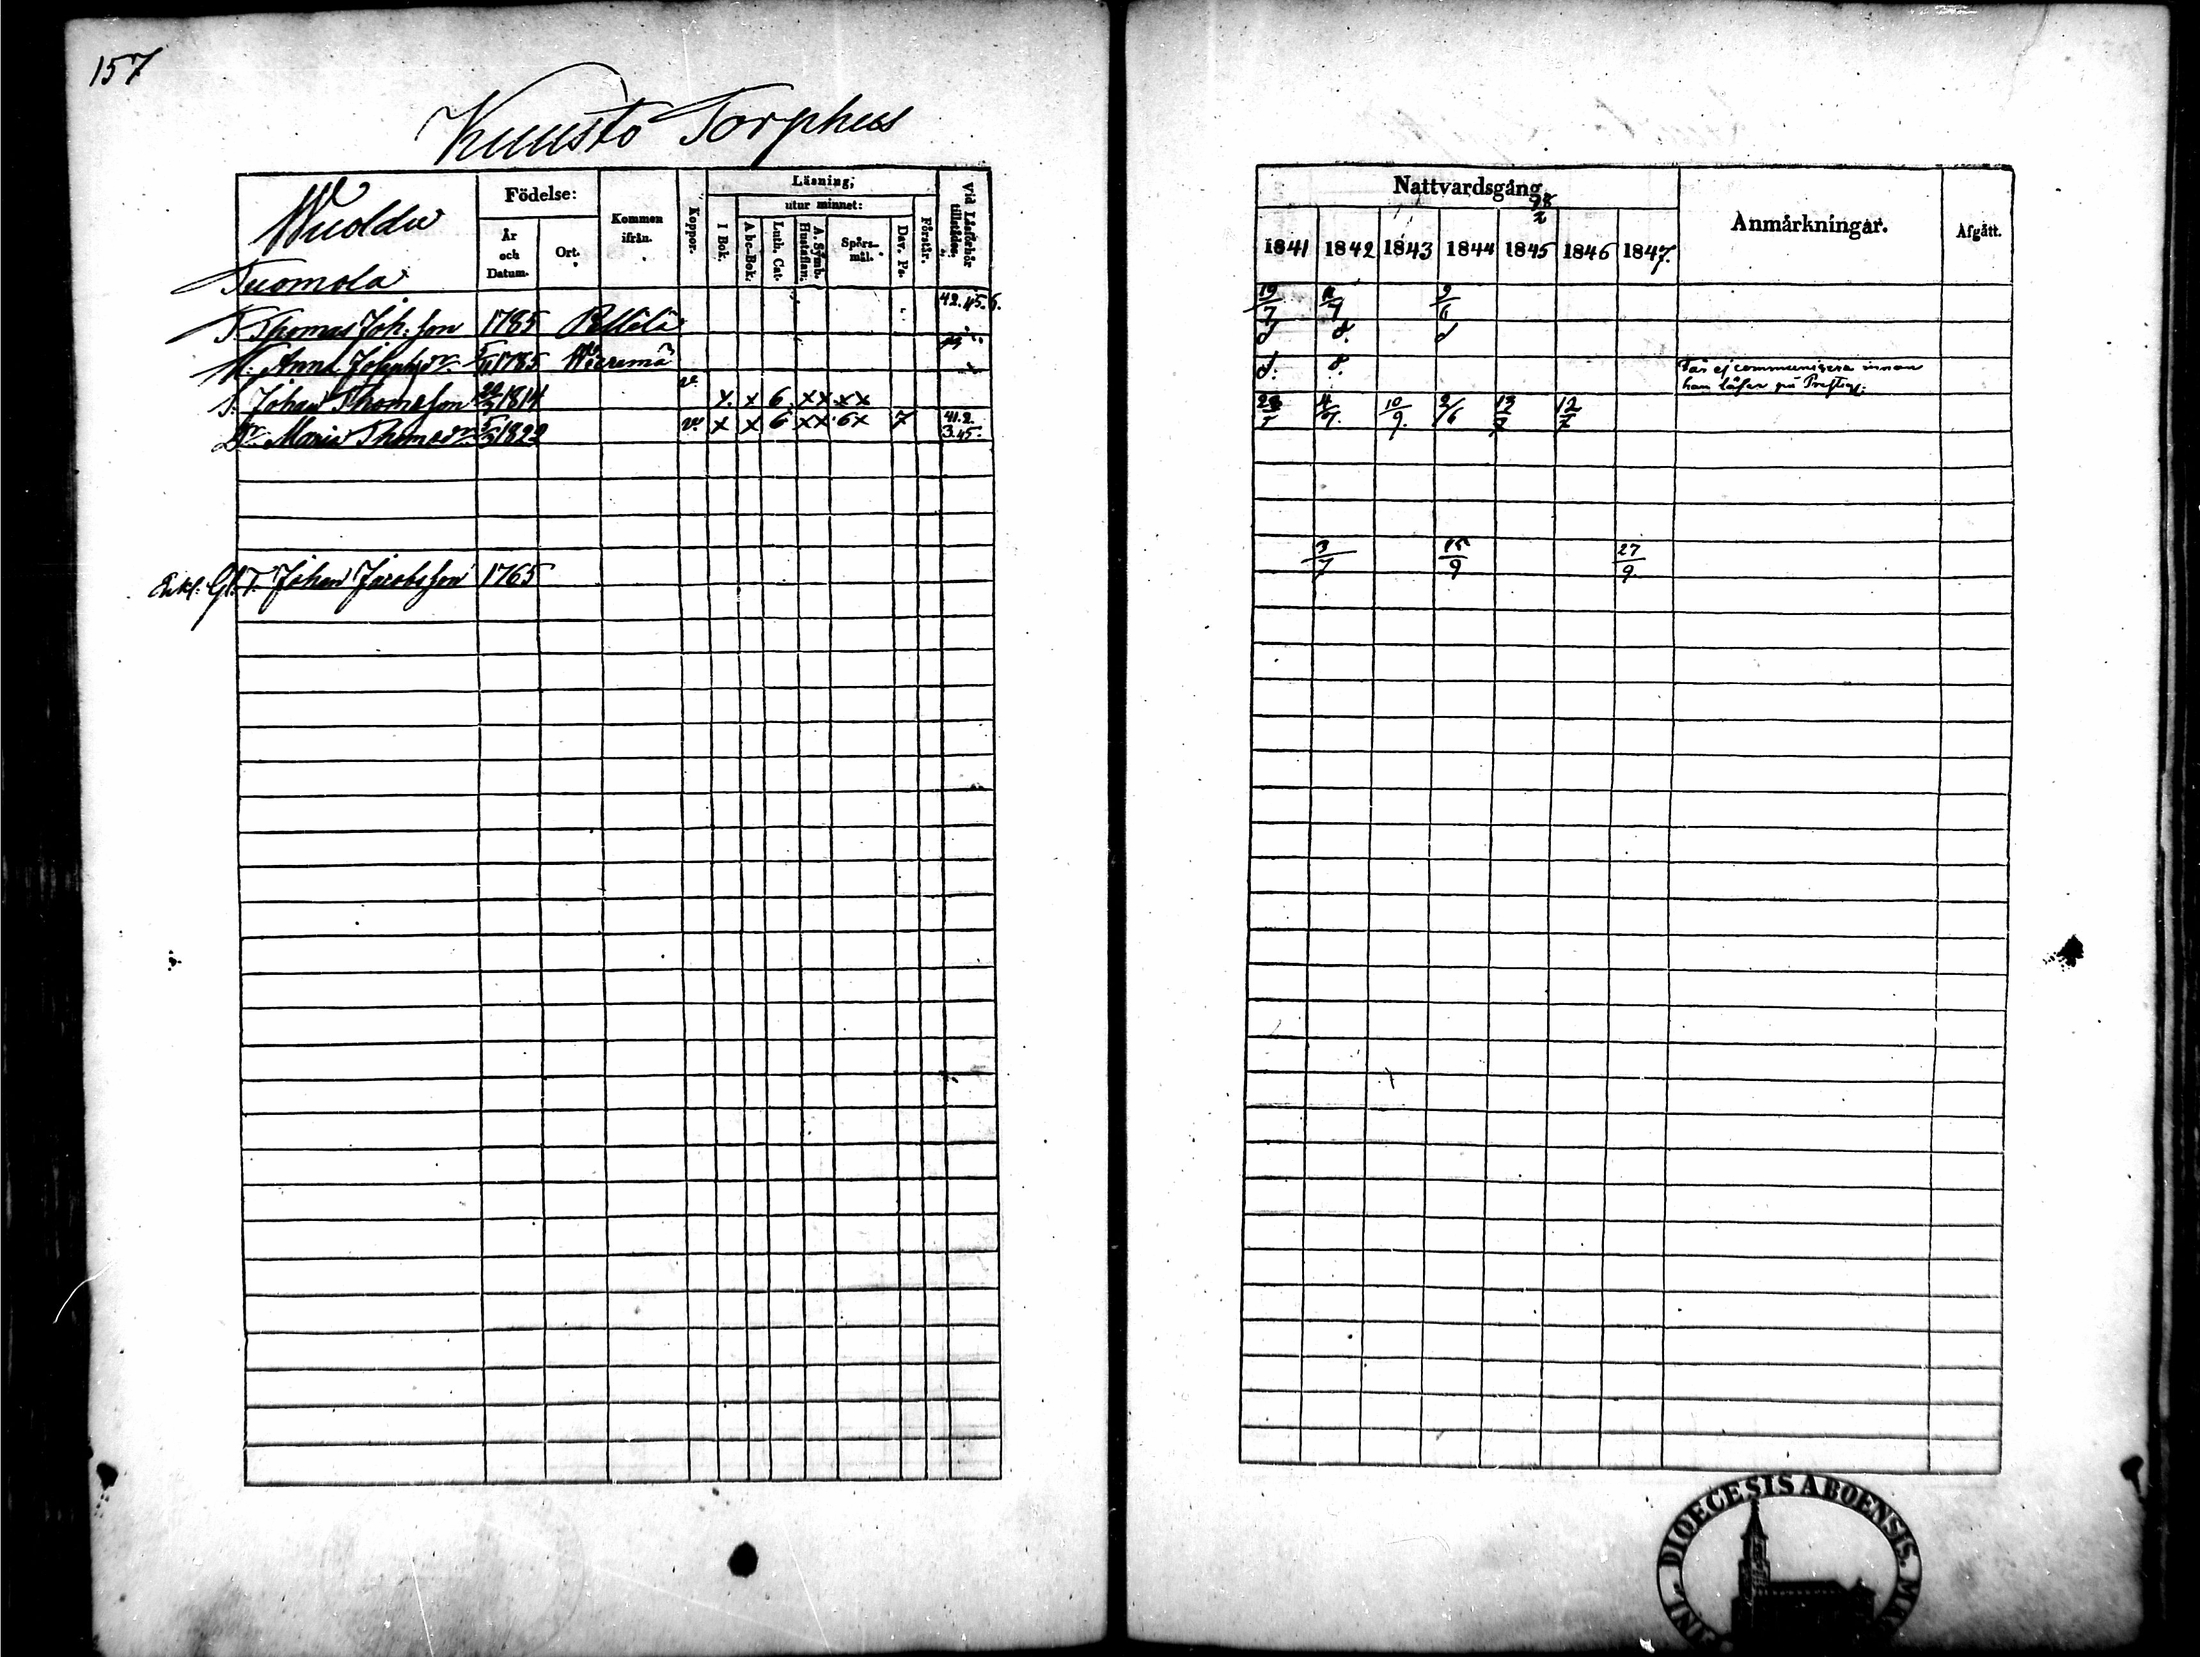 157
Kuusto Torphus
Wuoldu
Födelse:
År och Datum.
Ort.
Kommen ifrån.
Koppor.
Läsning,
utur minnet:
I Bok.
Abc-Bok.
Luth. Cat.
A. Symb. Hustaflan.
Spörs-mål.
Dav. Ps.
Förstår.
Vid Läsförhör tillstädes.
Tuomola
T. Thomas Joh:son 1785 42. 45. 6.
H. Anna Johansdr 1785
S. Johan Thomasson 22/2 1814 v x x 6 x x x x
Dr Maria Thomasdr 1822 v x x 6 x x 6 x 7 41.2. 3.45.
Enkl. Gl. T. Johan Jacobsson 1765
Nattvardsgång
98
2
1841 1842 1843 1844 1845 1846 1847.
Anmärkningar.
Afgått.
19/7 4/9 2/6
d d. d
d. d. Får ej communicera innan
han läser på Prestg.
4/9. 10/9. 2/6 13/7 12/7
3/7 15/9 27/9.
DIOECESIS ABOENSIS.